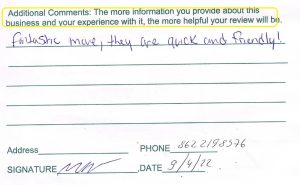 Additional Comments: The more information you provide about this
business and your experience with it, the more helpful your review will be.
fantastic move, they are quick and friendly!
Address
PHONE 862 2198576
SIGNATURE
,DATE 9/4/22